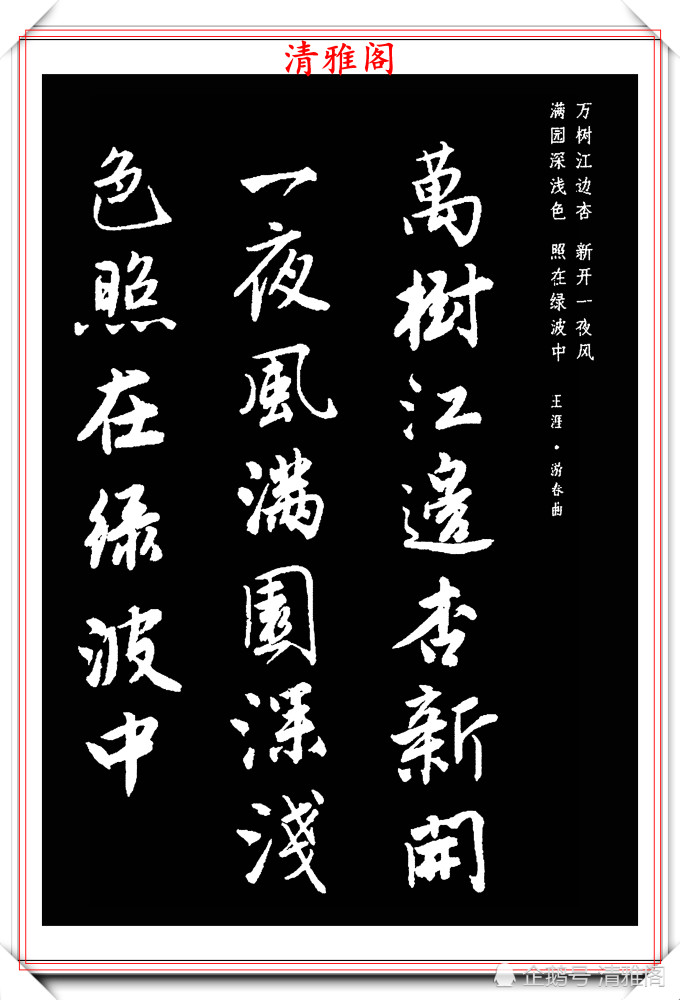 清雅阁
万树江边杏 新开一夜风
满园深浅色 照在绿波中 王涯·游春曲
萬樹江邊杏新開
一夜風满園深淺
色照在绿波中
企鹅号 清雅阁